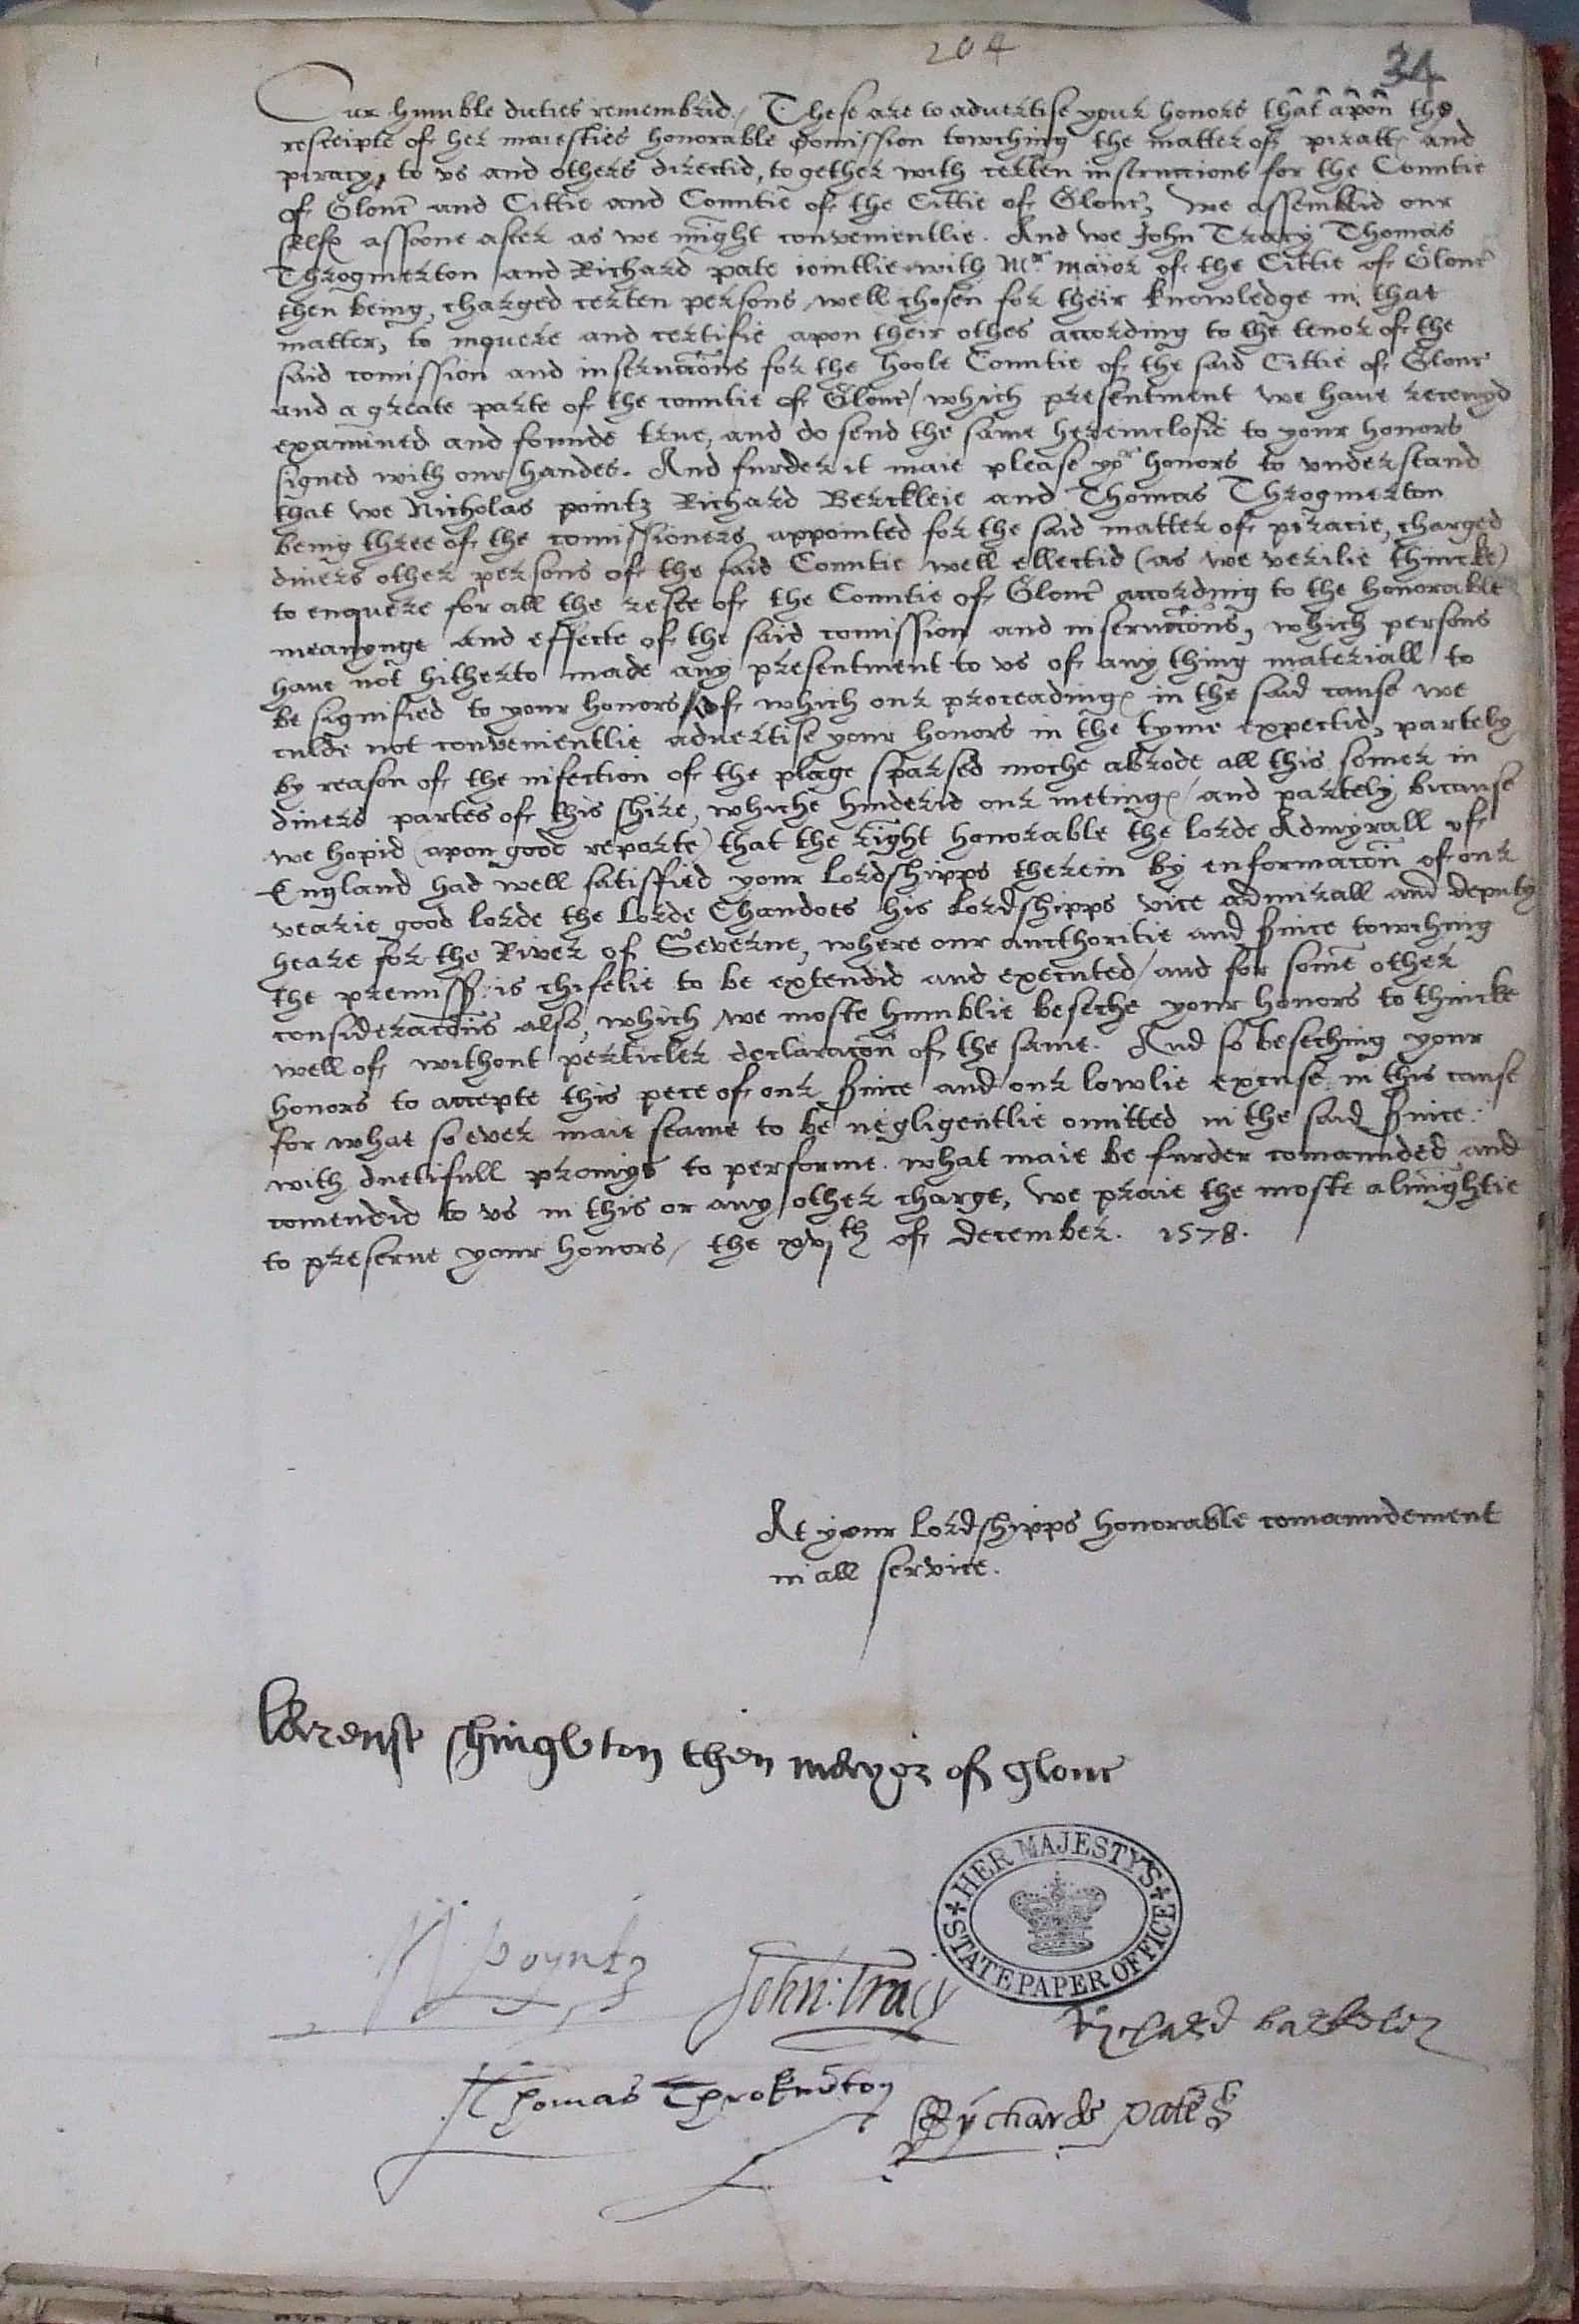 204
34
Our humble duties remembrid / These are to advertise your honors that apon the
resceipte of her maiesties honorable Comission towching the matter of piratts and
piracy, to vs and others directid, together with certen instruccions for the Countie
of Glouc and Cittie and Countie of the Cittie of Glouc, we assemblid our
selfs assone after as we might convenientlie. And we John Tracy Thomas
Throgmerton and Richard pate iointlie with Mr maior of the Cittie of Glouc
then being, charged certen persons well chosen for their knowledge in that
matter, to inquere and certifie apon their othes according to the tenor of the
said comission and instrucons for the hoole Countie of the said Cittie of Glouc
and a greate parte of the countie of Glouc / which presentment we haue receuyd
examined and founde true, and do send the same hereinclosid to your honors
signed with our handes. And furder it maie please yor honors to vnderstand
that we Nicholas pointz Richard Berckleie and Thomas Throgmerton
being three of the comissioners appointed for the said matter of piracie, charged
diuers other persons of the said Countie well ellectid (as we verilie thincke)
to enquere for all the reste of the Countie of Glouc according to the honorable
meanynge and effecte of the said comission and instrucons, which persons
haue not hitherto made any presentment to vs of any thing materiall to
be signified to your honors / Of which our proceadings in the said cause we
culde not convenientlie aduertise your honors in the tyme expectid, partely
by reason of the infection of the plage sparsed moche abrode all this somer in
diuers partes of this shire, whiche hinderid our metings / and partely bicause
we hopid (apon good reporte) that the right honorable the lorde Admyrall of
England had well satisfied your Lordshipps therein by enformacon of our
vearie good lorde the Lorde Chandoes his Lordshipps vice admirall and deputy
heare for the River of Severne, where our aucthoritie and seruice towching
the premiss: is chifelie to be extendid and executed / and for some other
consideracons also, which we moste humblie beseche your honors to thincke
well of without perticler declaracon of the same. And so beseching your
honors to accepte this pece of our seruice and our lowlie excuse in this cause
for what so ever maie seame to be negligentlie omitted in the said seruice:
with duetifull promys to performe what maie be furder comaunded and
comendid to vs in this or any other charge, we praie the moste almightie
to preserue your honors / the xvjth of december. 1578.
At your lordshipps honorable comaundement
in all service.
Larense Shingleton then mayor of glouc
HER MAJESTY'S STATE PAPER OFFICE
N: Poyntz
John: Tracy
Rychard barkeley
Thomas Throkmerton
Rychard Pates